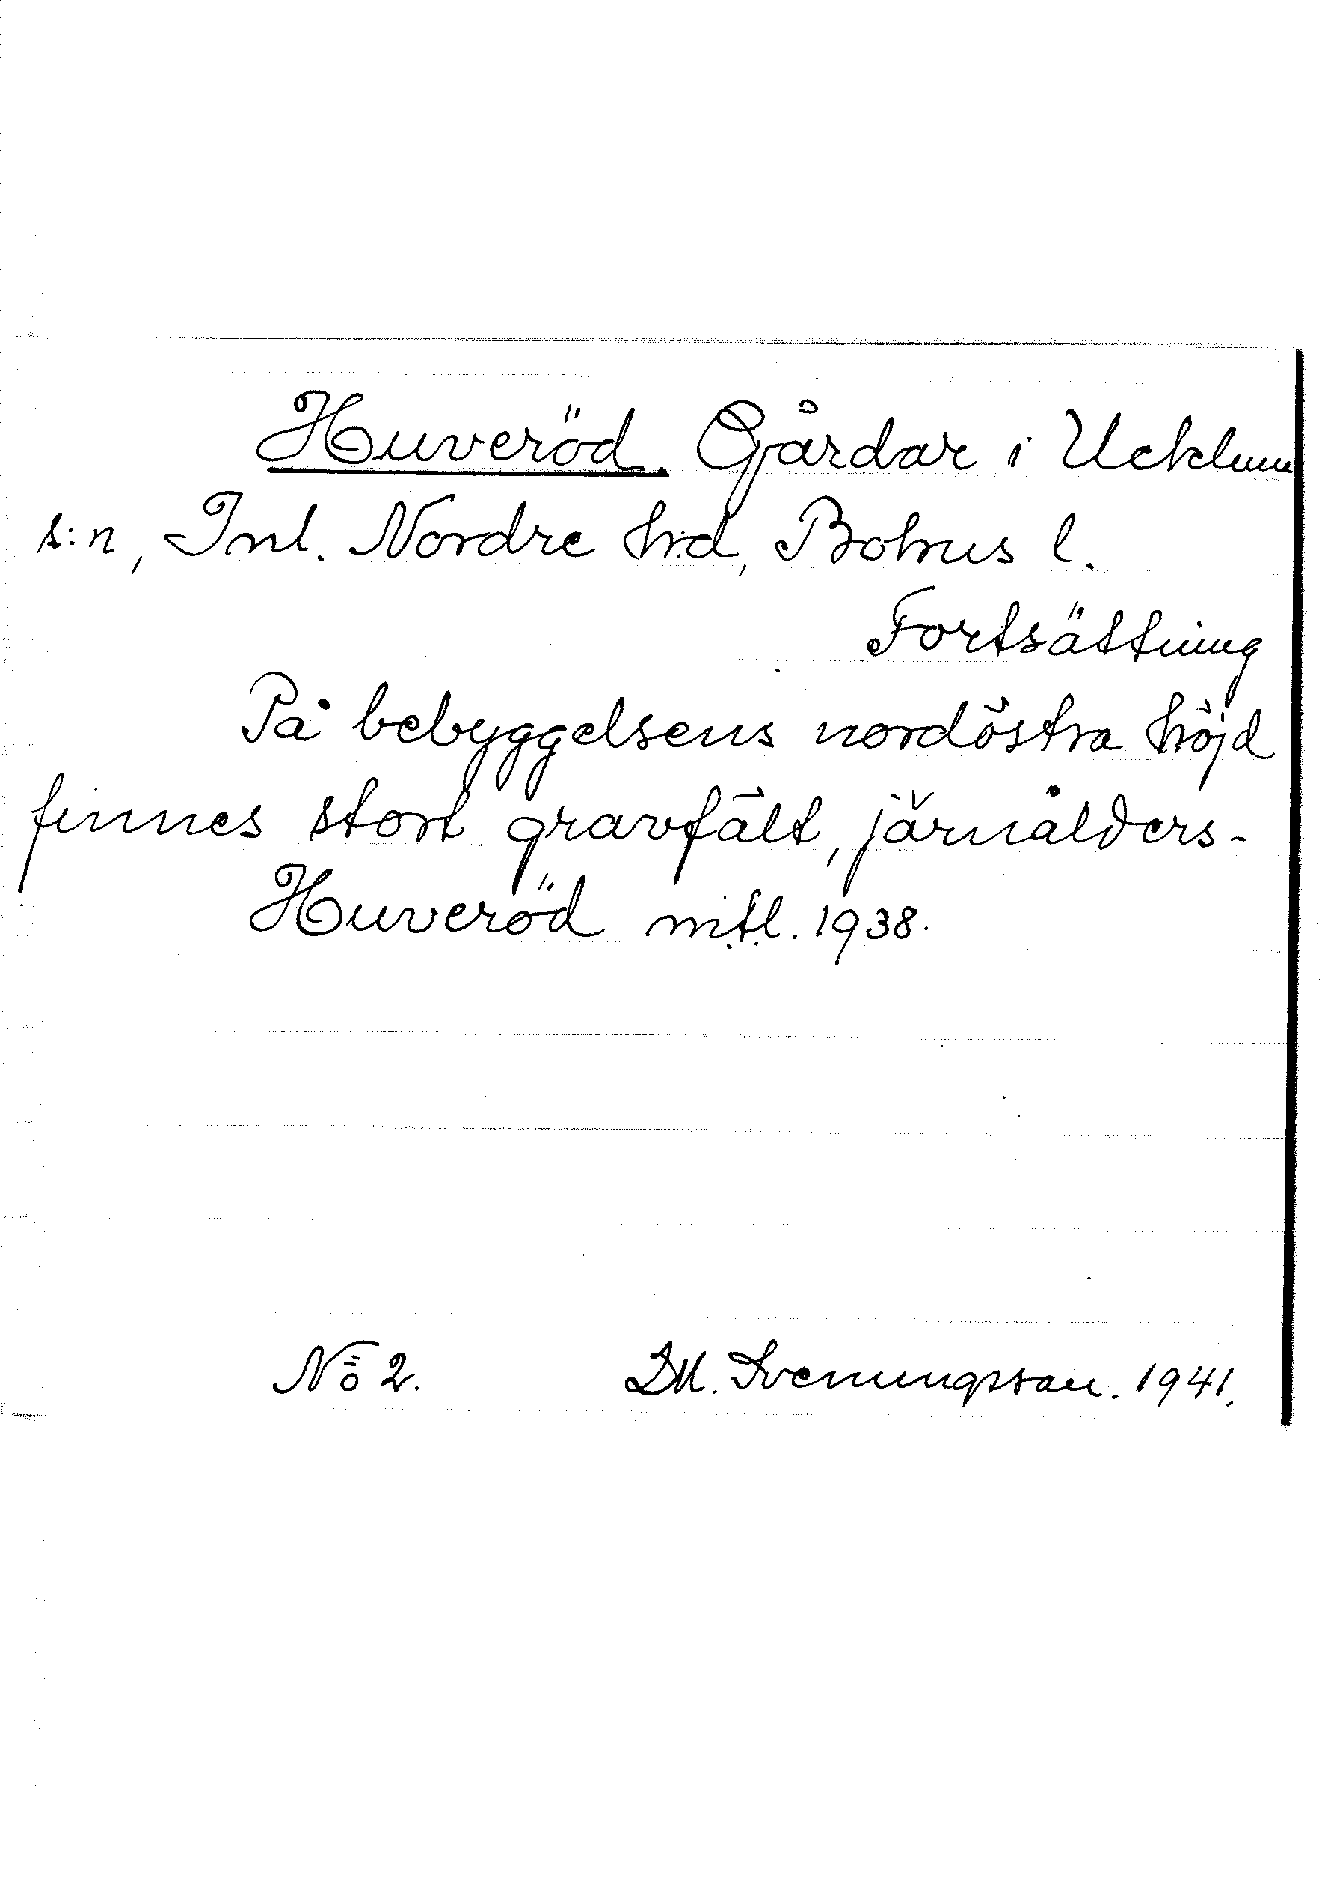 Huveröd. Gårdar i Ucklum
s:n, Inl. Nordre hrd, Bohus l.
Fortsättning
På bebyggelsens nordöstra höjd
finnes stort gravfält, järnålders-
Huveröd mtl. 1938.
No 2. D.M. Svenungsson. 1941.